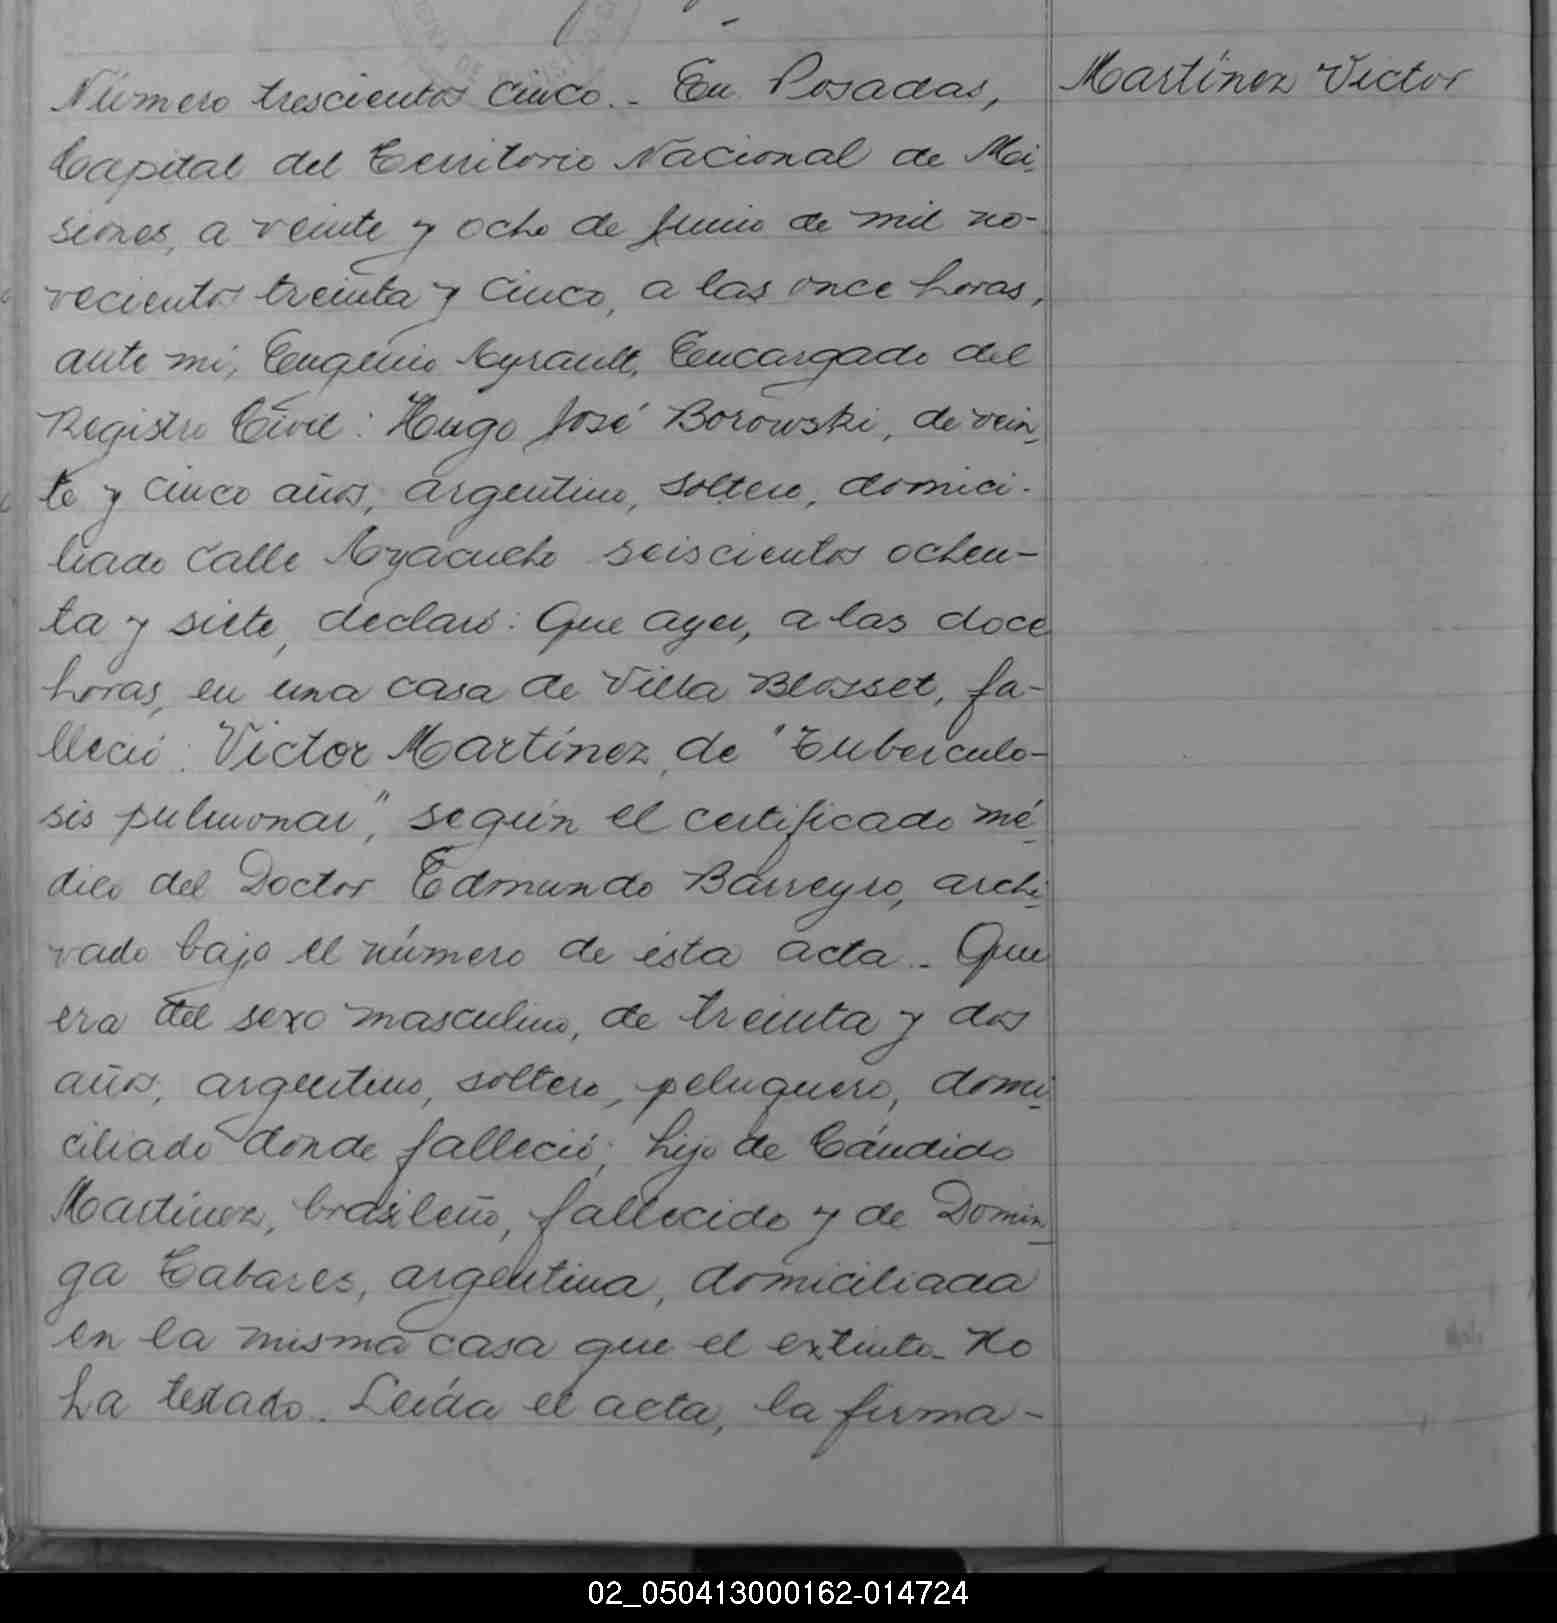 Número trescientos cinco.- En Posadas,
Martínez Victor
Capital del Territorio Nacional de Mi-
siones, a veinte y ocho de Junio de mil no-
vecientos treinta y cinco, a las once horas,
ante mí, Eugenio Ayrault, Encargado del
Registro Civil: Hugo José Borowski, de vein-
te y cinco años, argentino, soltero, domici-
liado calle Ayacucho seiscientos ochen-
ta y siete, declaró: Que ayer, a las doce
horas, en una casa de Villa Blosset, fa-
lleció: Victor Martínez, de "Tuberculo-
sis pulmonar", según el certificado mé-
dico del Doctor Edmundo Barreyro, archi-
vado bajo el número de ésta acta.- Que
era del sexo masculino, de treinta y dos
años, argentino, soltero, peluquero, domi-
ciliado donde falleció; hijo de Cándido
Martínez, brasileño, fallecido y de Domin-
ga Tabares, argentina, domiciliada
en la misma casa que el extinto.- No
ha testado. Leída el acta, la firma-
02_050413000162-014724